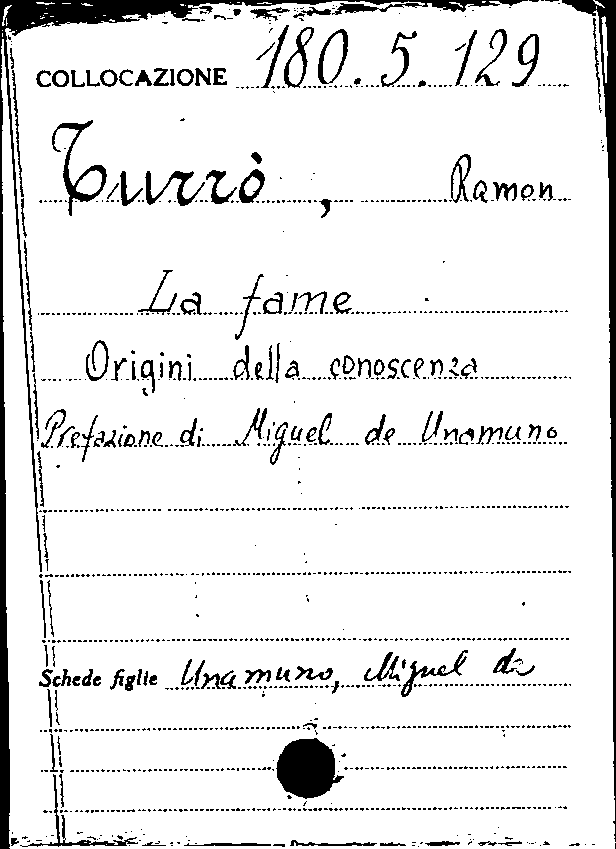 COLLOCAZIONE 180.5.129
Turrò, Ramon
La fame
Origini della conoscenza
Prefazione di Miguel de Unamuno
Schede figlie Unamuno, Miguel de